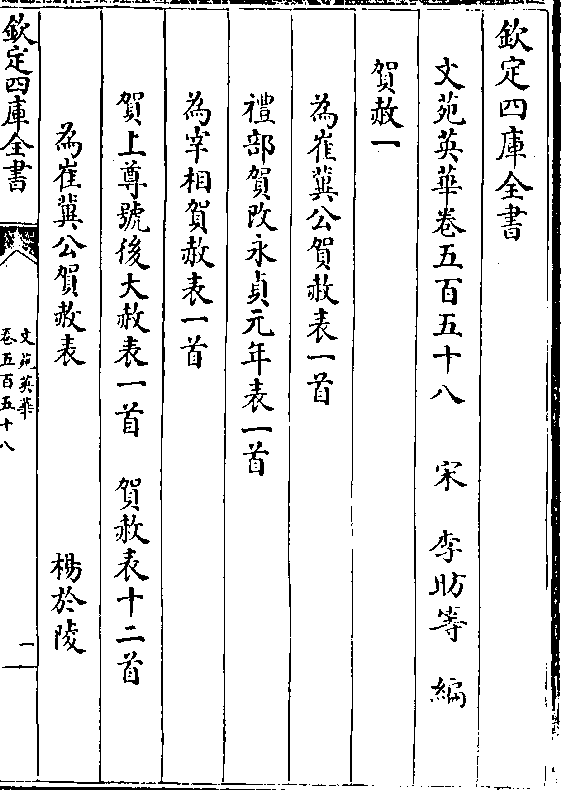 欽定四庫全書
文苑英華卷五百五十八 宋 李昉等 編
賀赦一
為崔冀公賀赦表一首
禮部賀改永貞元年表一首
為宰相賀赦表一首
賀上尊號後大赦表一首 賀赦表十二首
為崔冀公賀赦表 楊於陵
欽定四庫全書
文苑英華
卷五百五十八
一